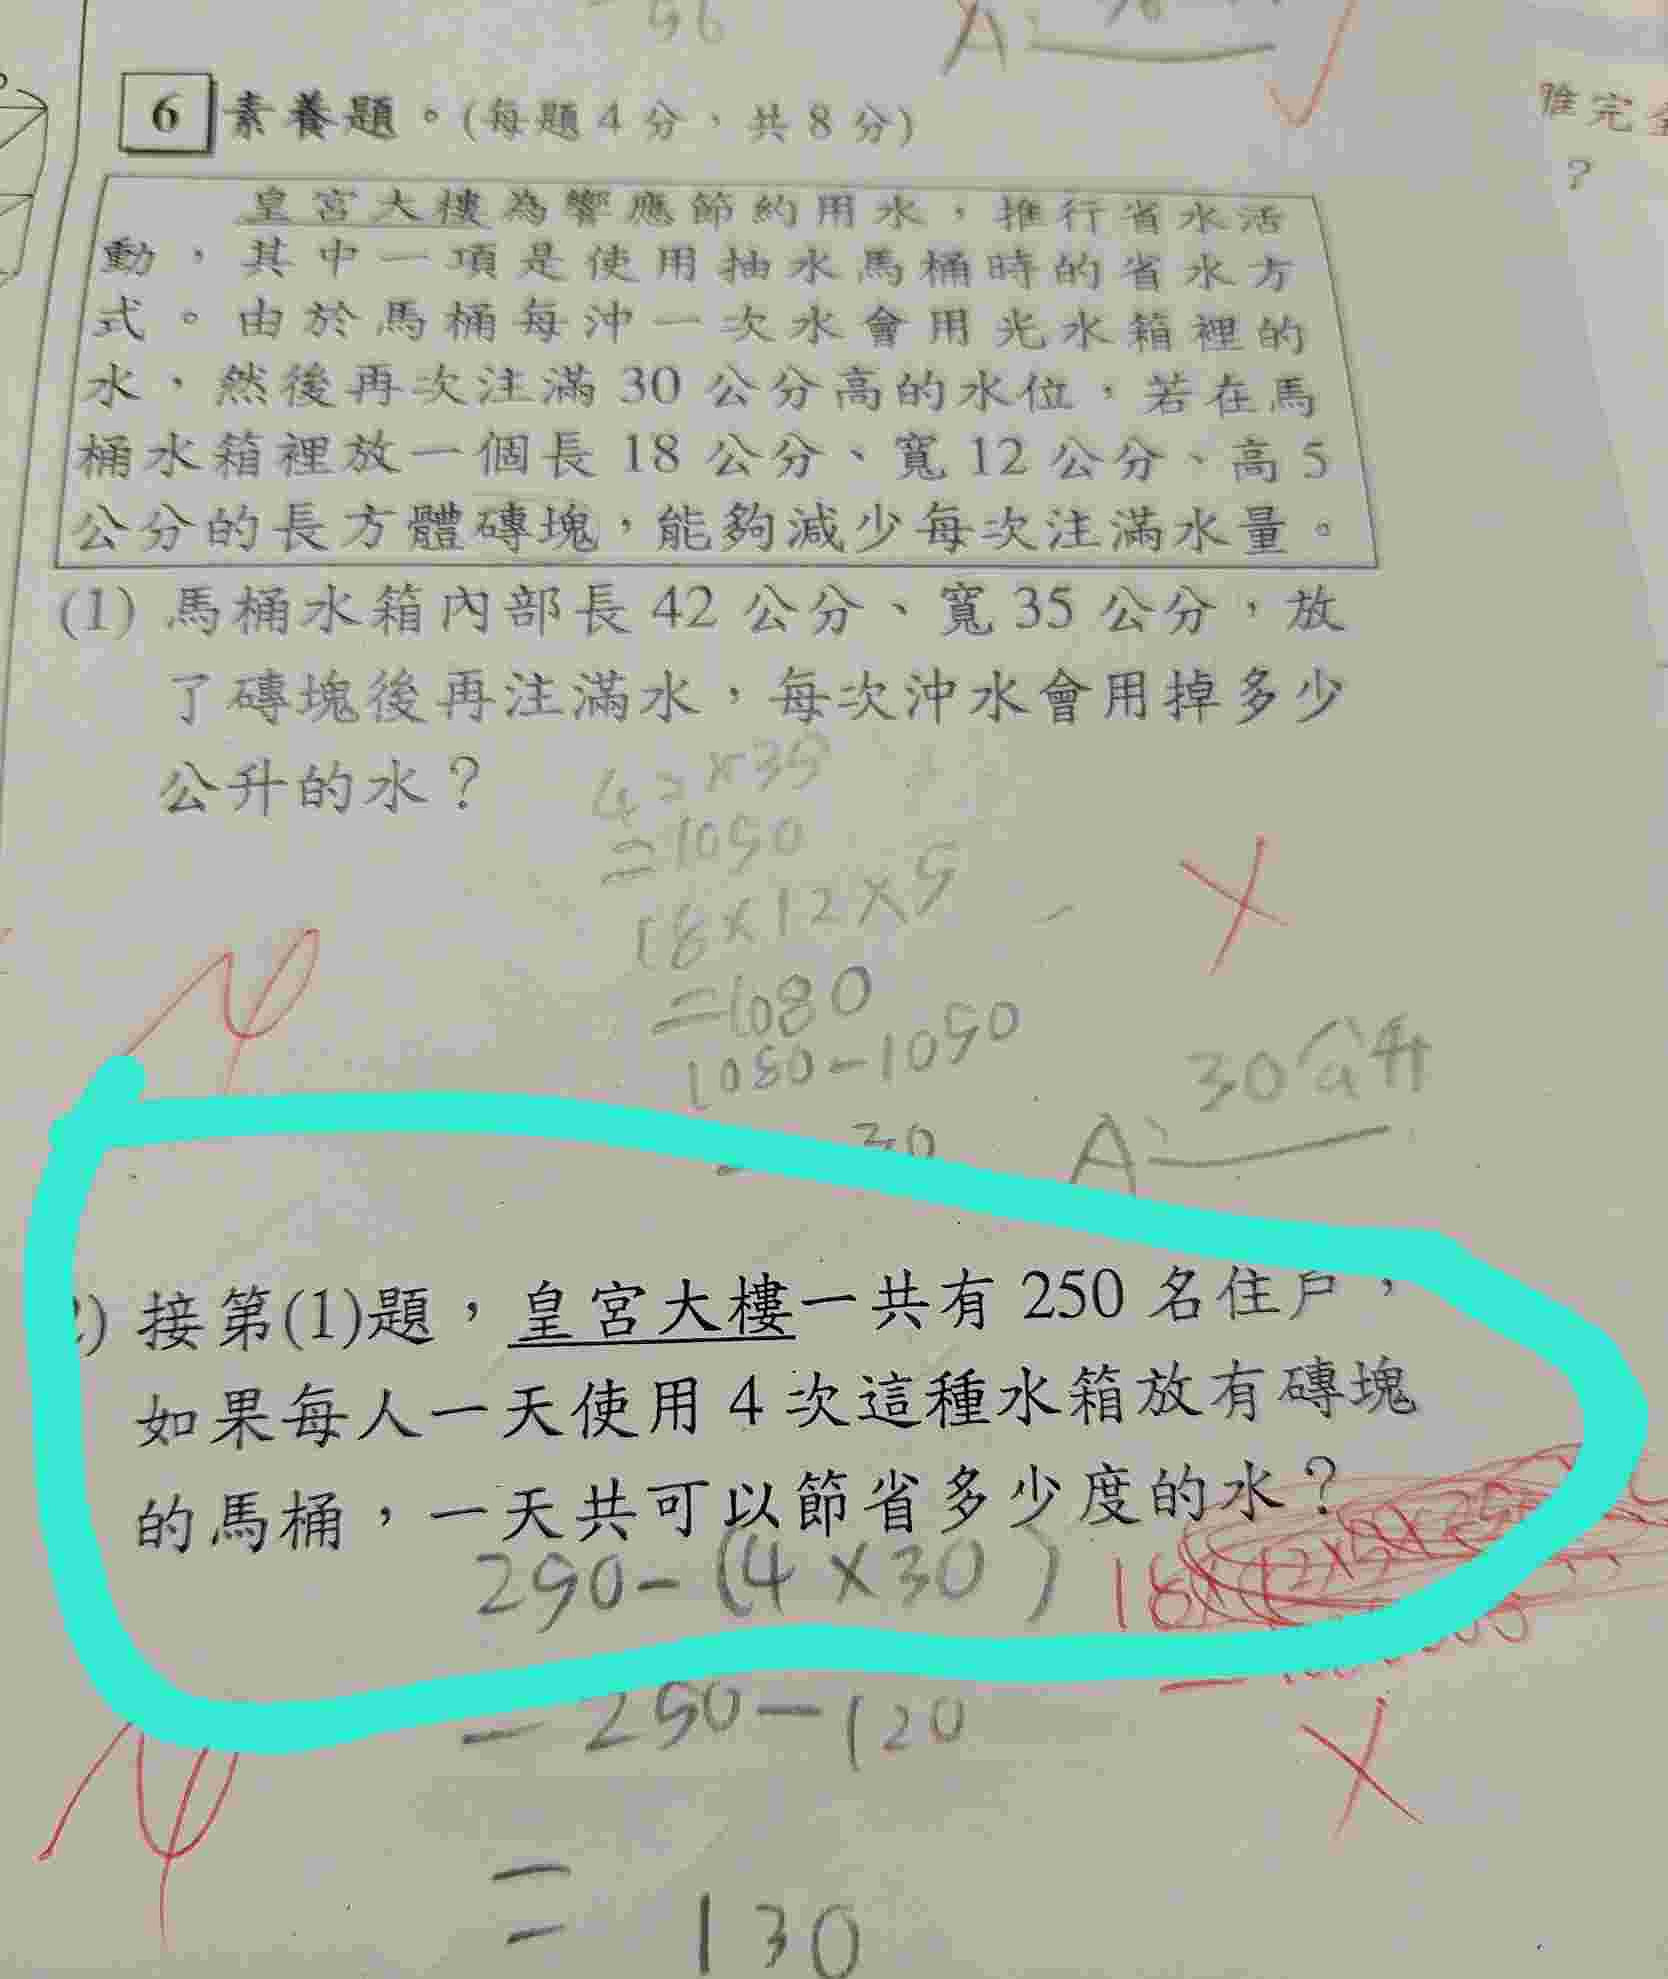 56
A:
6 素養題。(每題 4 分，共 8 分)
皇宮大樓為響應節約用水，推行省水活
動，其中一項是使用抽水馬桶時的省水方
式。由於馬桶每沖一次水會用光水箱裡的
水，然後再次注滿 30 公分高的水位，若在馬
桶水箱裡放一個長 18 公分、寬 12 公分、高 5
公分的長方體磚塊，能夠減少每次注滿水量。
(1) 馬桶水箱內部長 42 公分、寬 35 公分，放
了磚塊後再注滿水，每次沖水會用掉多少
公升的水？
42×35
=1050
18×12×5
=1080
1080-1050
30
A: 30公升
) 接第(1)題，皇宮大樓一共有 250 名住戶，
如果每人一天使用 4 次這種水箱放有磚塊
的馬桶，一天共可以節省多少度的水？
250-(4×30)
=250-120
=130
完全
?